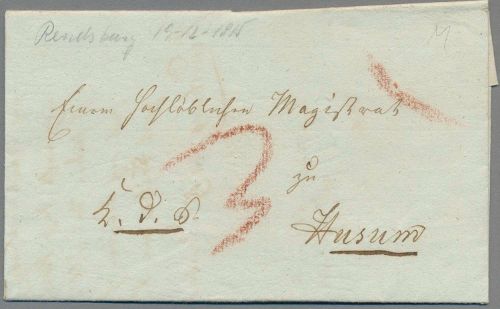 Rendsburg 19-12-1815 M
Einem Hochlöblichen Magistrat
3 zu
K. D. S. Husum